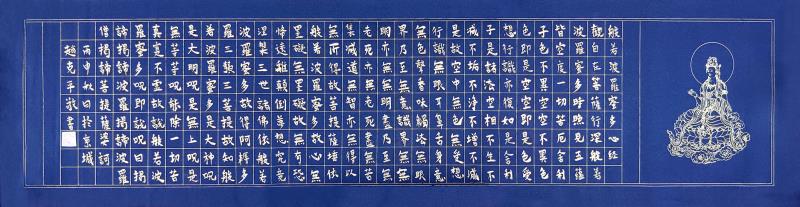 般若波羅蜜多心經
觀自在菩薩行深般若
波羅蜜多時照見五蘊
皆空度一切苦厄舍利
子色不異空空不異色
色即是空空即是色受
想行識亦復如是舍利
子是諸法空相不生不
滅不垢不淨不增不減
是故空中無色無受想
行識無眼耳鼻舌身意
無色聲香味觸法無眼
界乃至無意識界無無
明亦無無明盡乃至無
老死亦無老死盡無苦
集滅道無智亦無得以
無所得故菩提薩埵依
般若波羅蜜多故心無
罣礙無罣礙故無有恐
怖遠離顛倒夢想究竟
涅槃三世諸佛依般若
波羅蜜多故得阿耨多
羅三藐三菩提故知般
若波羅蜜多是大神咒
是大明咒是無上咒是
無等等咒能除一切苦
真實不虛故說般若波
羅蜜多咒即說咒曰揭
諦揭諦波羅揭諦波羅
僧揭諦菩提薩婆訶
丙申秋日於京城
趙克平敬書